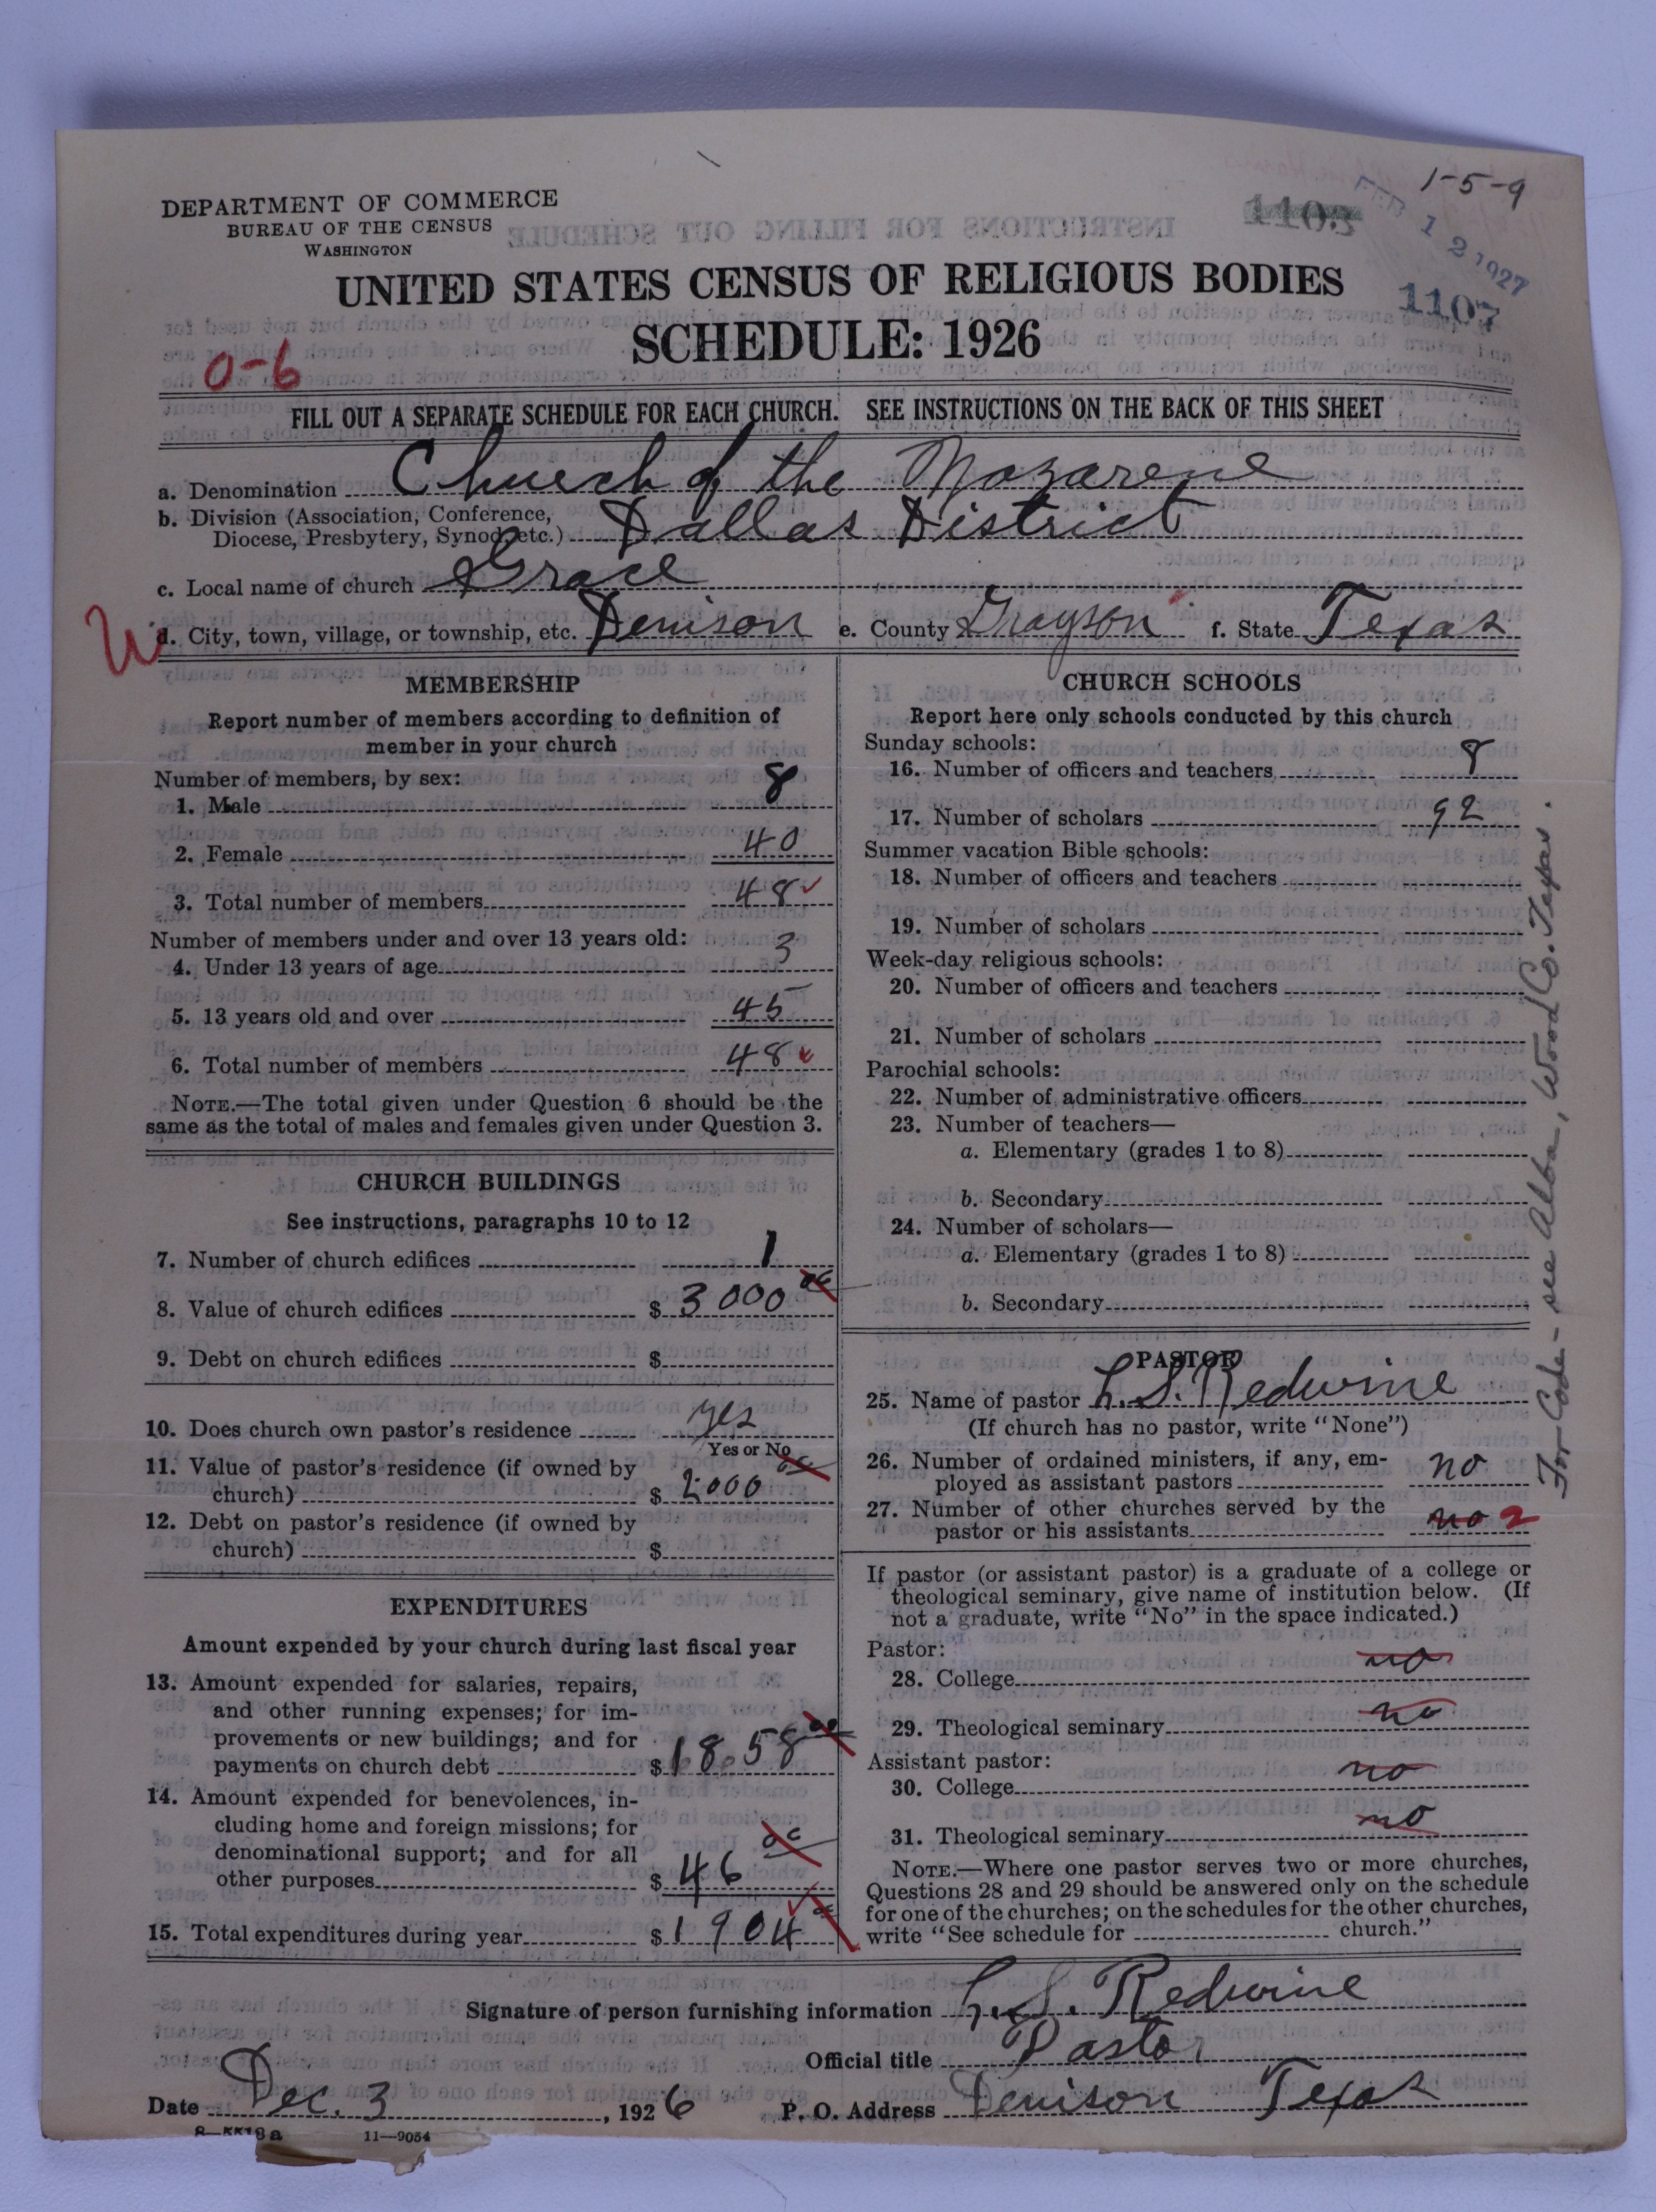 1-5-9
DEPARTMENT OF COMMERCE
BUREAU OF THE CENSUS
WASHINGTON
1103
FEB 12 1927
1107
UNITED STATES CENSUS OF RELIGIOUS BODIES
SCHEDULE: 1926
0-6
FILL OUT A SEPARATE SCHEDULE FOR EACH CHURCH. SEE INSTRUCTIONS ON THE BACK OF THIS SHEET
a. Denomination Church of the Nazarene
b. Division (Association, Conference,
Diocese, Presbytery, Synod, etc.) Dallas District
c. Local name of church Grace
d. City, town, village, or township, etc. Denison e. County Grayson f. State Texas
MEMBERSHIP
Report number of members according to definition of
member in your church
Number of members, by sex:
1. Male 8
2. Female 40
3. Total number of members 48 ✓
Number of members under and over 13 years old:
4. Under 13 years of age 3
5. 13 years old and over 45
6. Total number of members 48 ✓
NOTE.—The total given under Question 6 should be the
same as the total of males and females given under Question 3.
CHURCH BUILDINGS
See instructions, paragraphs 10 to 12
7. Number of church edifices 1
8. Value of church edifices $ 3000 00
9. Debt on church edifices $
10. Does church own pastor's residence yes
Yes or No
11. Value of pastor's residence (if owned by
church) $ 2000 00
12. Debt on pastor's residence (if owned by
church) $
EXPENDITURES
Amount expended by your church during last fiscal year
13. Amount expended for salaries, repairs,
and other running expenses; for im-
provements or new buildings; and for
payments on church debt $ 1858 00
14. Amount expended for benevolences, in-
cluding home and foreign missions; for
denominational support; and for all
other purposes $ 46 00
15. Total expenditures during year $ 1904 00
CHURCH SCHOOLS
Report here only schools conducted by this church
Sunday schools:
16. Number of officers and teachers 8
17. Number of scholars 92
Summer vacation Bible schools:
18. Number of officers and teachers
19. Number of scholars
Week-day religious schools:
20. Number of officers and teachers
21. Number of scholars
Parochial schools:
22. Number of administrative officers
23. Number of teachers—
a. Elementary (grades 1 to 8)
b. Secondary
24. Number of scholars—
a. Elementary (grades 1 to 8)
b. Secondary
PASTOR
25. Name of pastor L. S. Redwine
(If church has no pastor, write "None")
26. Number of ordained ministers, if any, em-
ployed as assistant pastors no
27. Number of other churches served by the
pastor or his assistants no 2
If pastor (or assistant pastor) is a graduate of a college or
theological seminary, give name of institution below. (If
not a graduate, write "No" in the space indicated.)
Pastor:
28. College no
29. Theological seminary no
Assistant pastor:
30. College no
31. Theological seminary no
NOTE.—Where one pastor serves two or more churches,
Questions 28 and 29 should be answered only on the schedule
for one of the churches; on the schedules for the other churches,
write "See schedule for church."
For Code - see Alba, Wood Co. Texas.
Signature of person furnishing information L. S. Redwine
Official title Pastor
Date Dec. 3, 1926 P. O. Address Denison Texas
8—5518a 11—9054